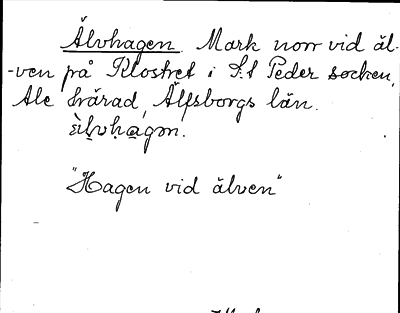 Älvhagen. Mark norr vid äl-
-ven på Klostret i S:t Peder socken,
Ale härad, Älfsborgs län.

"Hagen vid älven"